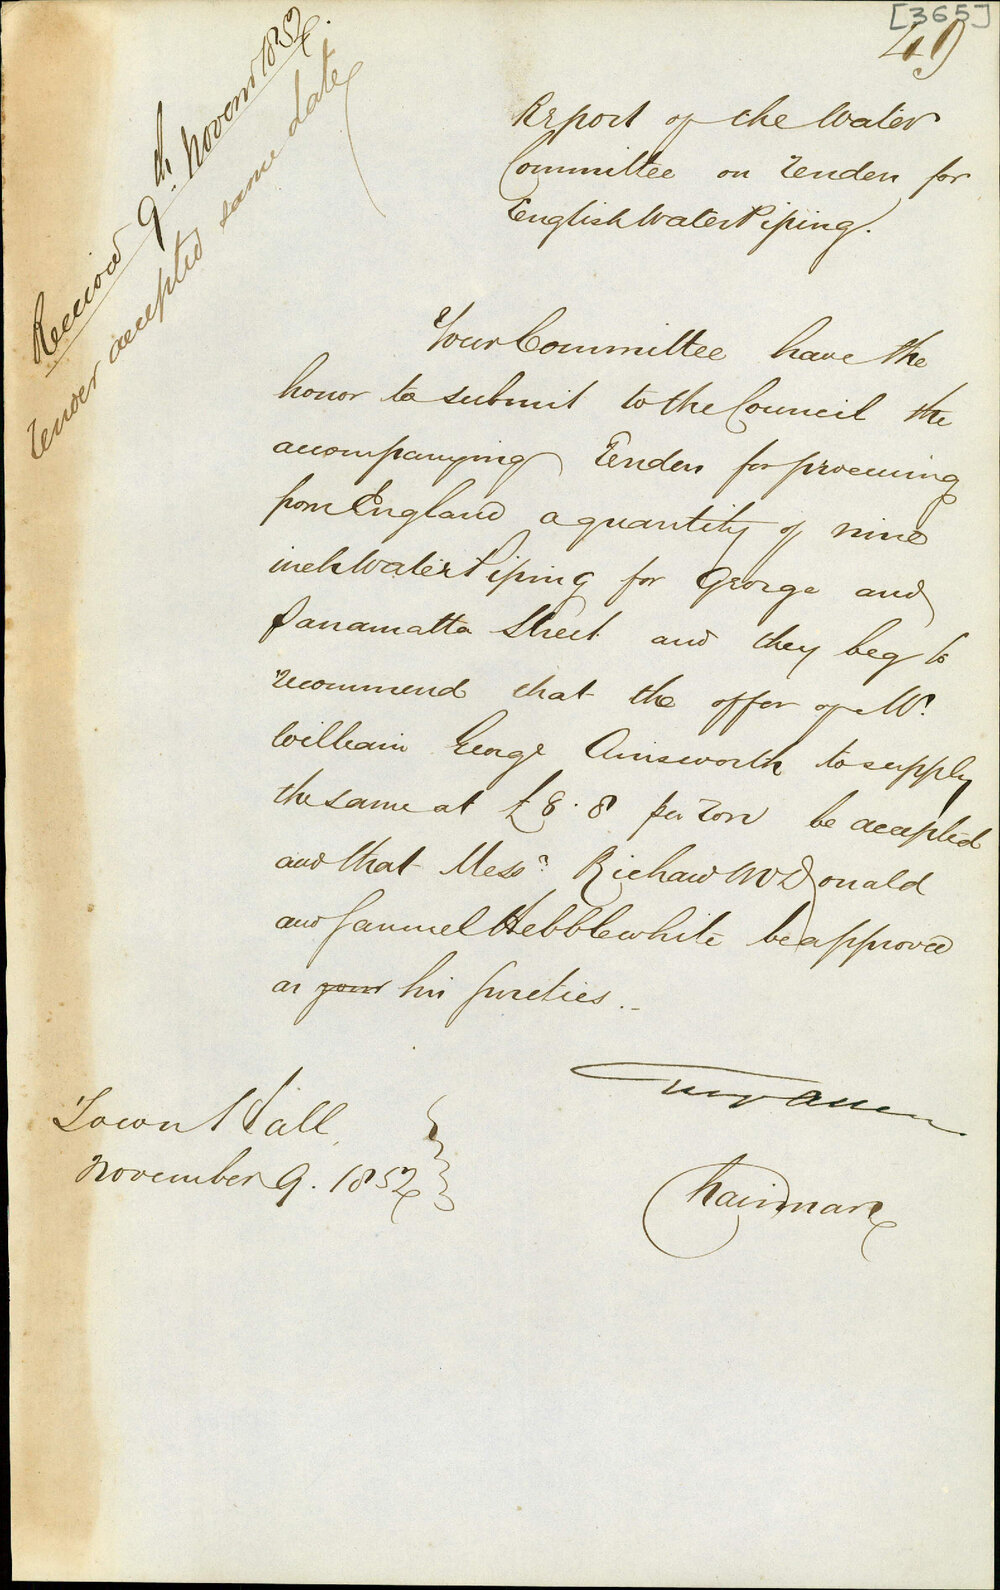 [365]
49
Received 9th. Novemr 1852.
Tender accepted same date
Report of the Water
Committee on Tender for
English Water Piping.
Your Committee have the
honor to submit to the Council the
accompanying Tender for procuring
from England a quantity of nine
inch Water Piping for George and
Parramatta Street and they beg to
recommend that the offer of Mr.
William George Ainsworth to supply
the same at £8.8 per Ton be accepted
and that Messrs. Richard McDonald
and Samuel Hebblewhite be approved
as your his sureties.
Allen
Chairman
Town Hall
November 9. 1852